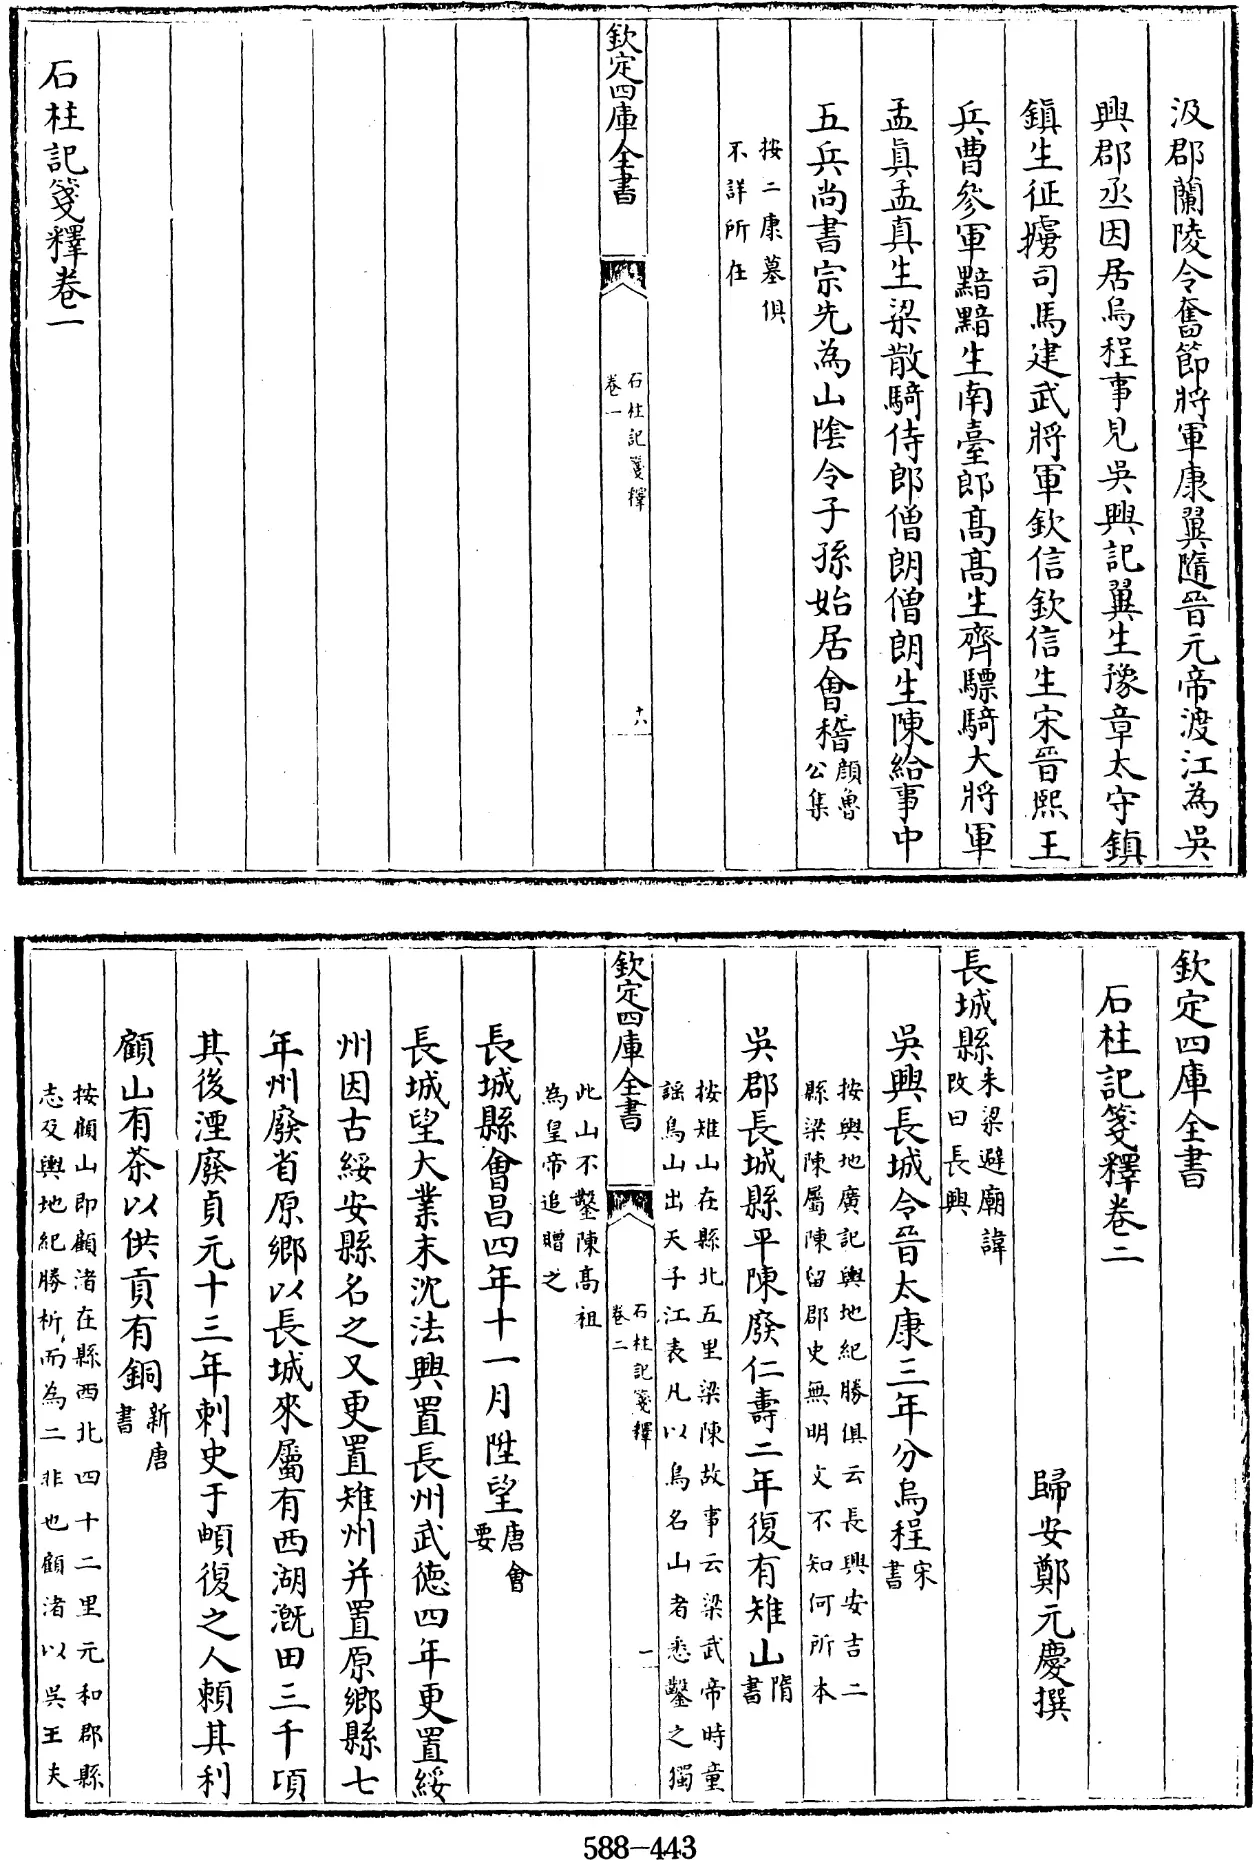 汲郡蘭陵令奮節將軍康翼隨晉元帝渡江為吳
興郡丞因居烏程事見吳興記翼生豫章太守鎮
鎮生征虜司馬建武將軍欽信欽信生宋晉熙王
兵曹參軍黯黯生南臺郎高高生齊驃騎大將軍
孟真孟真生梁散騎侍郎僧朗僧朗生陳給事中
五兵尚書宗先為山陰令子孫始居會稽顔魯
公集
按二康墓俱
不詳所在
欽定四庫全書
石柱記箋釋
卷一
十八
石柱記箋釋卷一
欽定四庫全書
石柱記箋釋卷二
歸安鄭元慶撰
長城縣朱梁避廟諱
改曰長興
吳興長城令晉太康三年分烏程宋
書
按輿地廣記輿地紀勝俱云長興安吉二
縣梁陳屬陳留郡史無明文不知何所本
吳郡長城縣平陳廢仁壽二年復有雉山隋
書
按雉山在縣北五里梁陳故事云梁武帝時童
謠鳥山出天子江表凡以鳥名山者悉鑿之獨
欽定四庫全書
石柱記箋釋
卷二
一
此山不鑿陳高祖
為皇帝追贈之
長城縣會昌四年十一月陞望唐會
要
長城望大業末沈法興置長州武德四年更置綏
州因古綏安縣名之又更置雉州并置原鄉縣七
年州廢省原鄉以長城來屬有西湖溉田三千頃
其後湮廢貞元十三年刺史于頔復之人賴其利
顧山有茶以供貢有銅新唐
書
按顧山即顧渚在縣西北四十二里元和郡縣
志及輿地紀勝析而為二非也顧渚以吳王夫
588-443